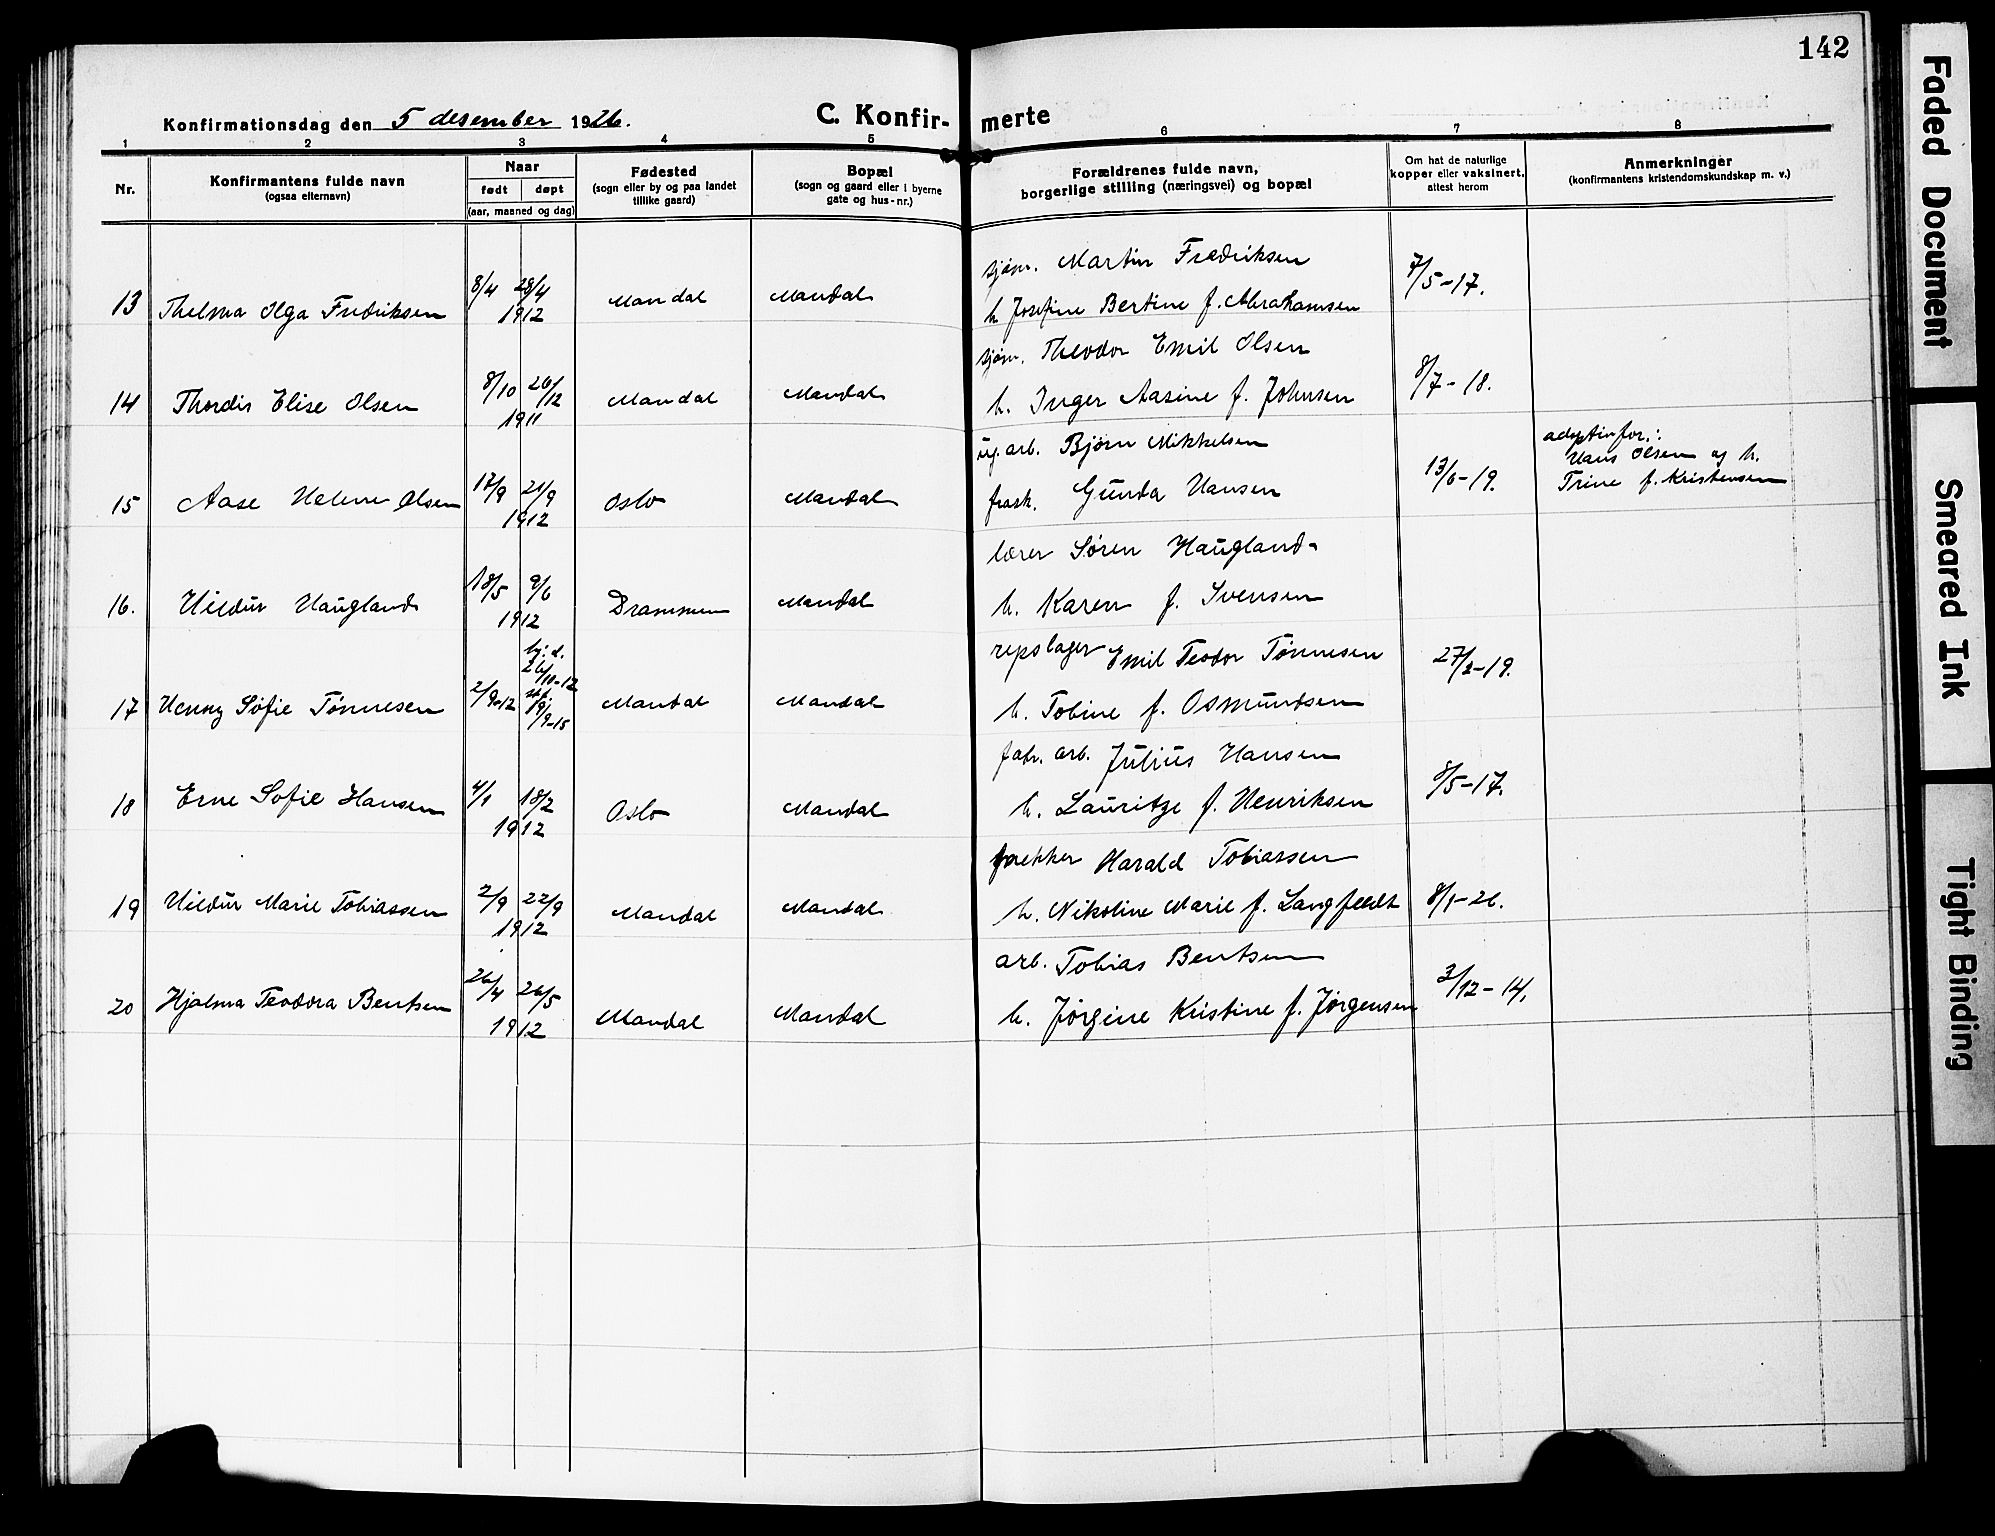 142
Konfirmationsdag den 5 desember 1926.
C. Konfir-merte
1 2 3 4 5 6 7 8
Nr.
Konfirmantens fulde navn
(ogsaa efternavn)
Naar
født døpt
(aar, maaned og dag)
Fødested
(sogn eller by og paa landet
tillike gaard)
Bopæl
(sogn og gaard eller i byerne
gate og hus-nr.)
Forældrenes fulde navn,
borgerlige stilling (næringsvei) og bopæl
Om hat de naturlige
kopper eller vaksinert,
attest herom
Anmerkninger
(konfirmantens kristendomskundskap m. v.)
sjøm. Martin Fredriksen
13 Thelma Olga Fredriksen 8/4 28/4 1912 Mandal Mandal h Josefine Bertine f. Abrahamsen 7/5-17.
sjøm. Theodor Emil Olsen
14 Thordis Elise Olsen 8/10 26/12 1911 Mandal Mandal h. Inger Aasine f. Johnsen 8/7-18.
ug. arb. Bjørn Mikkelsen
15 Aase Helene Olsen 17/9 21/9 1912 Oslo Mandal frask. Gunda Hansen 13/6-19.
adoptivfor.:
Hans Olsen og h.
Trine f. Kristensen
lærer Søren Haugland
16. Hildur Haugland 18/5 9/6 1912 Drammen Mandal h. Karen f. Svensen
repslager Emil Teodor Tønnesen
17 Henny Sofie Tønnesen 2/9-12 hj. d. 26/10-12 st.f. 19/9-15 Mandal Mandal h. Tobine f. Osmundsen 27/2-19.
fabr. arb. Julius Hansen
18 Erne Sofie Hansen 4/1 18/2 1912 Oslo Mandal h. Lauritze f. Henriksen 8/5-17.
Harald Tobiassen
19 Hildur Marie Tobiassen 2/9 22/9 1912 Mandal Mandal h. Nikoline Marie f. Langfeldt 8/1-26.
arb. Tobias Bentsen
20 Hjalma Teodora Bentsen 26/4 26/5 1912 Mandal Mandal h. Jørgine Kristine f. Jørgensen 3/12-14.
Faded Document
Smeared Ink
Tight Binding